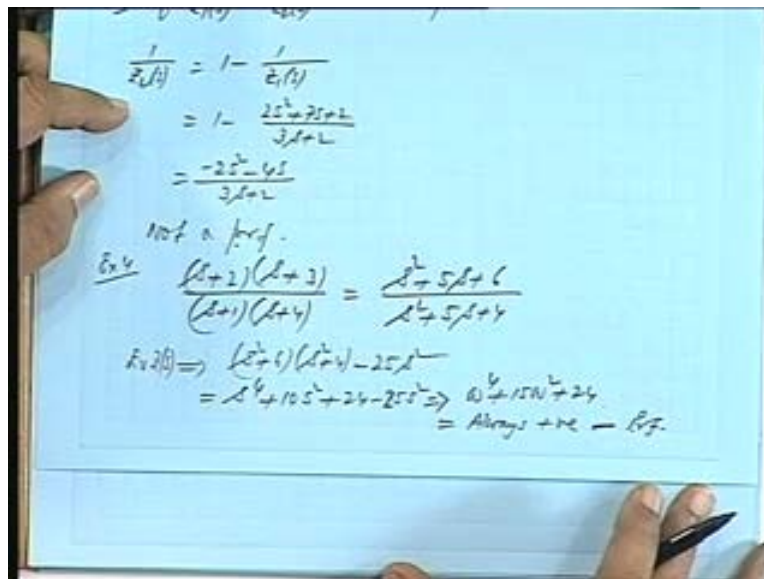 1/Z₂(s) = 1 - 1/Z₁(s)
= 1 - (2s²+7s+2)/(3s+2)
= (-2s²-4s)/(3s+2)
Not a prf.
Ex 4 (s+2)(s+3)/(s+1)(s+4) = (s²+5s+6)/(s²+5s+4)
Ev Z(s) ⇒ (s²+6)(s²+4) - 25s²
= s⁴+10s²+24-25s² ⇒ ω⁴+15ω²+24
= Always +ve - Prf.